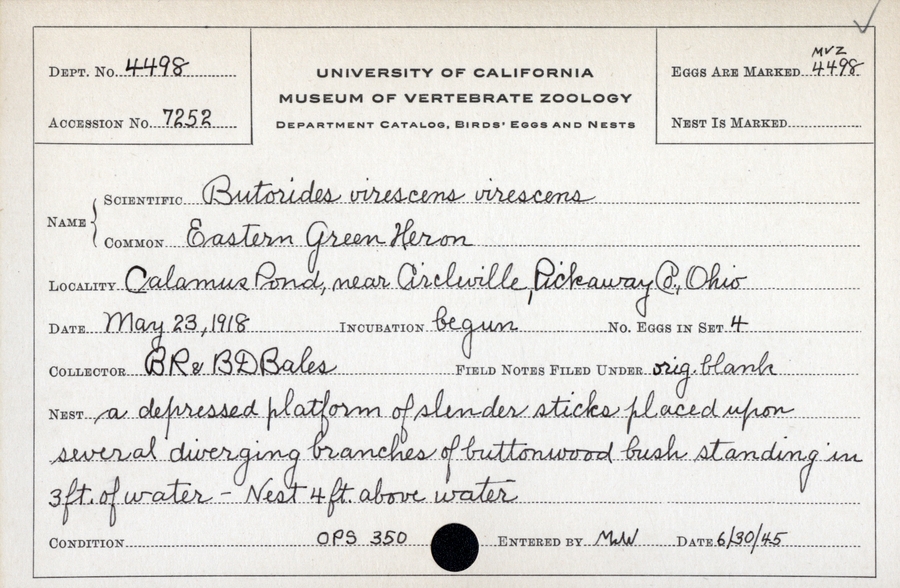 DEPT. No. 4498
ACCESSION No. 7252
UNIVERSITY OF CALIFORNIA
MUSEUM OF VERTEBRATE ZOOLOGY
DEPARTMENT CATALOG, BIRDS' EGGS AND NESTS
MVZ
EGGS ARE MARKED 4498
NEST IS MARKED
NAME
SCIENTIFIC Butorides virescens virescens
COMMON Eastern Green Heron
LOCALITY Calamus Pond, near Circleville, Pickaway Co., Ohio
DATE May 23, 1918 INCUBATION begun No. EGGS IN SET 4
COLLECTOR BR & BD Bales FIELD NOTES FILED UNDER orig. blank
NEST a depressed platform of slender sticks placed upon
several diverging branches of buttonwood bush standing in
3ft. of water - Nest 4 ft. above water
CONDITION OPS 350 ENTERED BY MW DATE 6/30/45